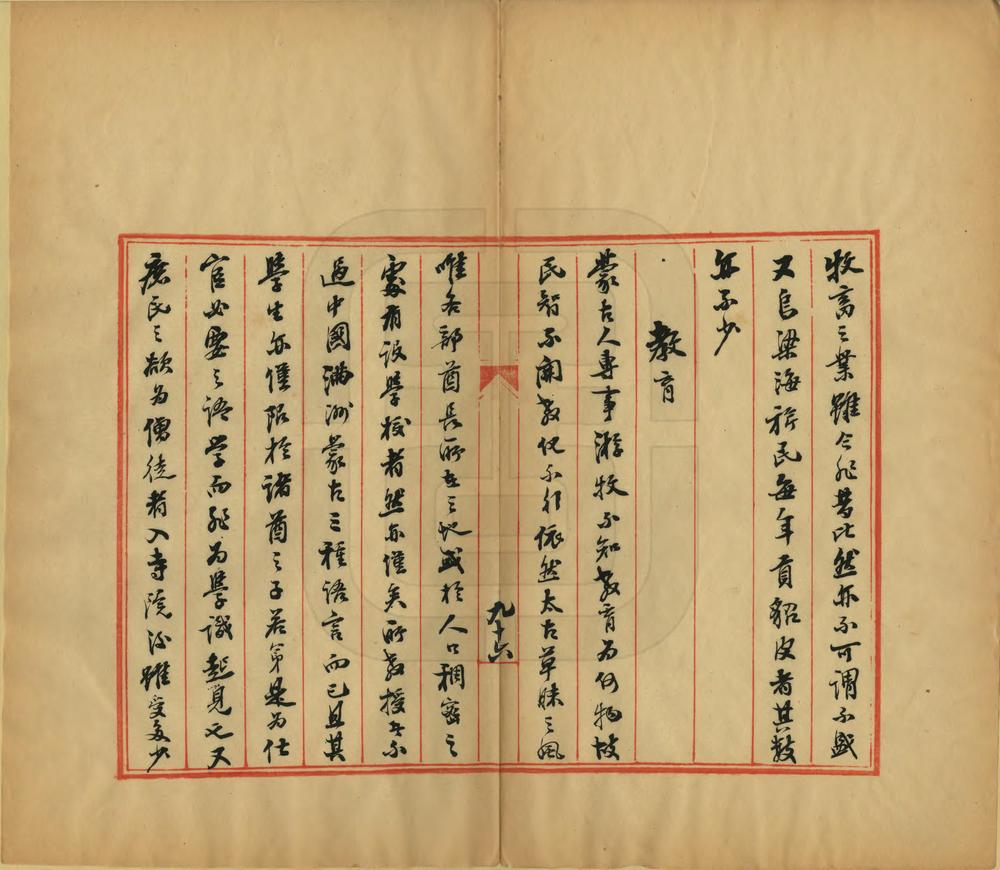 牧畜之業雖今非昔比然亦不可謂不盛
又烏梁海旅民每年貢貂皮者其數
亦不少
教育
蒙古人專事游牧不知教育為何物故
民智不開教化不行依然太古草昧之風
九十六
唯各部酋長所在之地或於人口稠密之
處有設學校者然亦僅矣所教授者不
過中國滿洲蒙古三種語言而已且其
學生亦僅限於諸酋之子若弟是為仕
官必要之語學而非為學識起見也又
庶民之欲為僧徒者入寺院後雖受多少